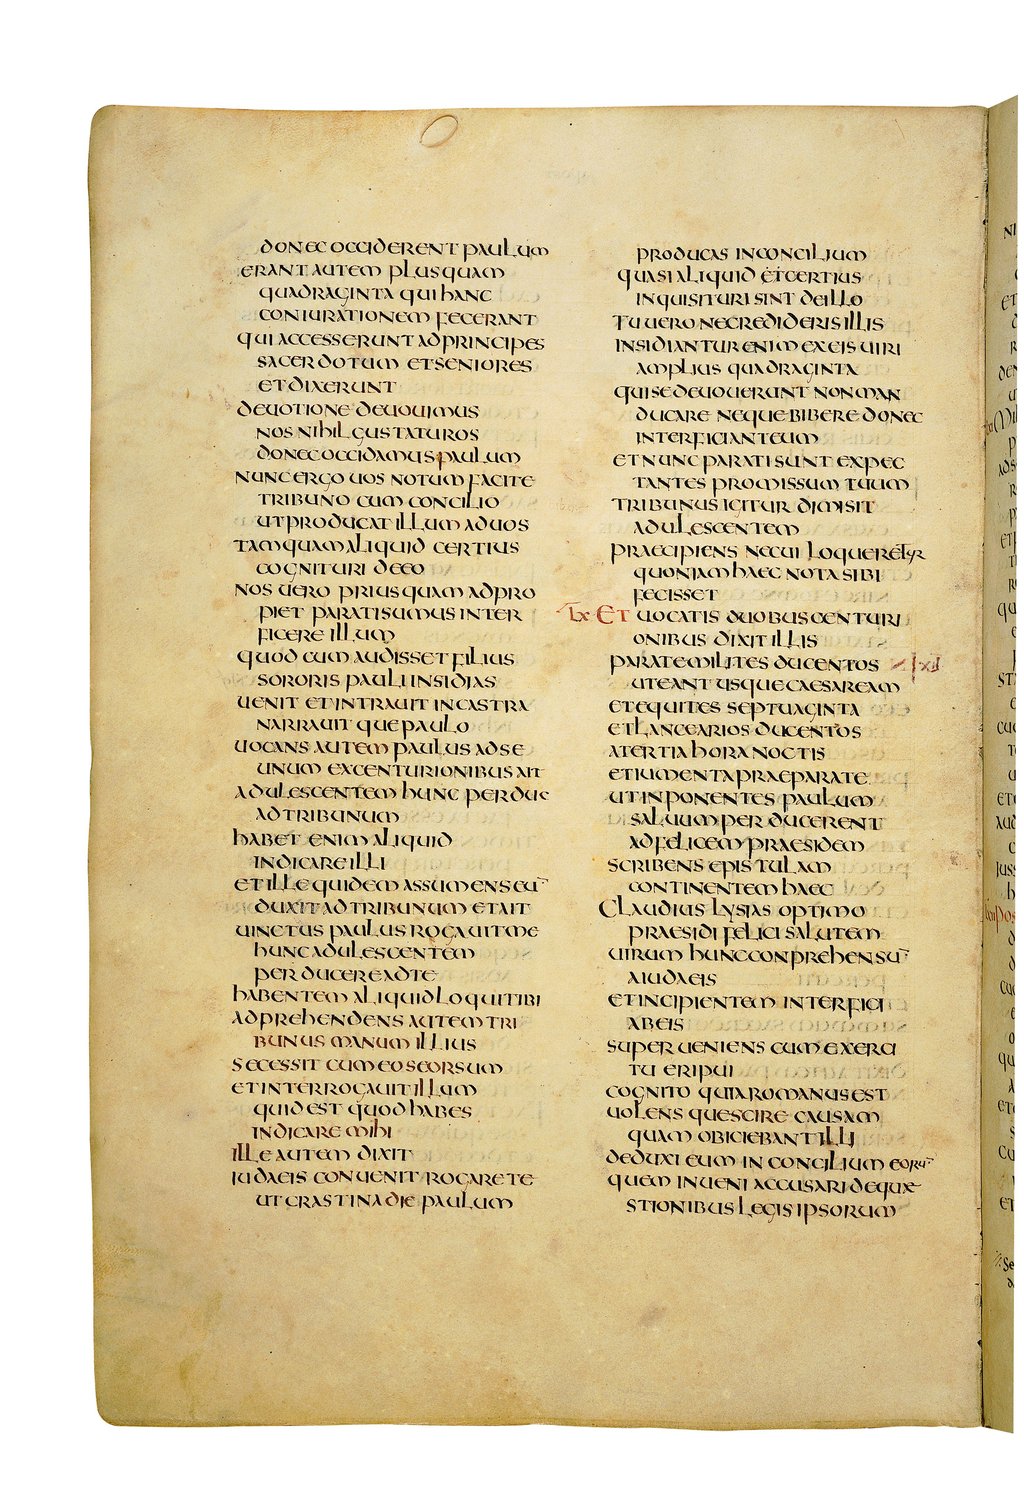 donec occiderent paulum
erant autem plus quam
quadraginta qui hanc
coniurationem fecerant
qui accesserunt ad principes
sacerdotum et seniores
et dixerunt
deuotione deuouimus
nos nihil gustaturos
donec occidamus paulum
nunc ergo uos notum facite
tribuno cum concilio
ut producat illum ad uos
tamquam aliquid certius
cognituri de eo
nos uero prius quam adpro
piet parati sumus inter
ficere illum
quod cum audisset filius
sororis pauli insidias
uenit et intrauit in castra
narrauit que paulo
uocans autem paulus ad se
unum ex centurionibus ait
adulescentem hunc perduc
ad tribunum
habet enim aliquid
indicare illi
et ille quidem assumens eu¯
duxit ad tribunum et ait
uinctus paulus rogauit me
hunc adulescentem
perducere ad te
habentem aliquid loqui tibi
adprehendens autem tri
bunus manum illius
secessit cum eo seorsum
et interrogauit illum
quid est quod habes
indicare mihi
ille autem dixit
iudaeis conuenit rogare te
ut crastina die paulum
producas in concilium
quasi aliquid certius
inquisituri sint de illo
tu uero ne credideris illis
insidiantur enim ex eis uiri
amplius quadraginta
qui se deuouerunt non man
ducare neque bibere donec
interficiant eum
et nunc parati sunt expec
tantes promissum tuum
tribunus igitur dimisit
adulescentem
praecipiens ne cui loqueretur
quoniam haec nota sibi
fecisset
lx Et uocatis duobus centuri
onibus dixit illis
parate milites ducentos
ut eant usque caesaream
et equites septuaginta
et lancearios ducentos
a tertia hora noctis
et iumenta praeparate
ut inponentes paulum
saluum perducerent
ad felicem praesidem
scribens epistulam
continentem haec
Claudius lysias optimo
praesidi felici salutem
uirum hunc conprehensu¯
a iudaeis
et incipientem interfici
ab eis
superueniens cum exerci
tu eripui
cognito quia romanus est
uolens que scire causam
quam obiciebant illi
deduxi eum in concilium eoru¯
quem inueni accusari de quae
stionibus legis ipsorum